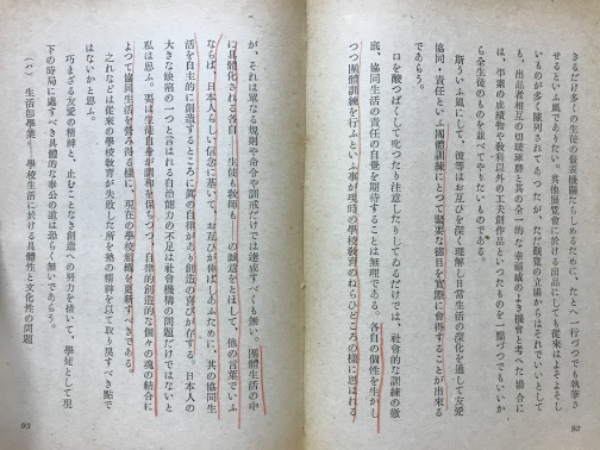 きるだけ多くの生徒の發表機關たらしめるために、たとへ一行づつでも執筆さ
せるといふ風でありたい。其他展覽會に於ける出品にしても從來はよそよそし
いものが多く陳列されてあつたが、ただ觀覽の立場からはそれでいいとして
も、出品者相互の切磋琢磨と其の全一的な幸福感のよき機會と考へた場合に
は、平素の成績物や敎科以外の工夫創作品といつたものを一點づつでもいいか
ら全生徒のものを並べてやりたいものである。
斯ういふ風にして、彼等はお互ひを深く理解し日常生活の深化を通して友愛
協同・責任といふ團體訓練にとつて緊要な德目を實際に會得することが出來る
であらう。
口を酸つぱくして叱つたり注意したりしてゐるだけでは、社會的な訓練の徹
底、協同生活の責任の自覺を期待することは無理である。各自の個性を生かし
つつ團體訓練を行ふといふ事が現時の學校敎育のねらひどころの樣に思はれる
92
が、それは單なる規則や命令や訓戒だけでは達成すべくも無い。團體生活の中
に具體化される各自――生徒も敎師も――の誠意をとほして、他の言葉でいふ
ならば、日本人らしい信念に基いて、お互ひが伸ばしあふために、其の協同生
活を自主的に創造するところに眞の自律があり創造の喜びが存する。日本人の
大きな缺陷の一つと言はれる自治能力の不足は社會機構の問題だけではないと
私は思ふ。要は生徒自身が調和を保ちつつ、自律的創造的な個々の魂の結合に
よつて協同生活を營み得る樣に、現在の學校組織を更新すべきである。
之れなどは從來の學校敎育が失敗した所を塾の精神を以て取り戾すべき點で
はないかと思ふ。
巧まざる友愛の精神と、止むことなき創造への努力を措いて、學徒として現
下の時局に處すべき具體的な奉公の道は恐らく無いであらう。
(八) 生活卽學業――學校生活に於ける具體性と文化性の問題
93